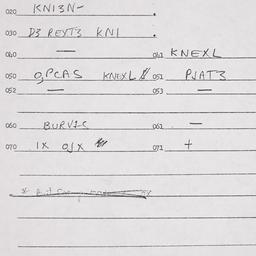 020 KNI3N-
030 D3 REYT3 KNI
040 — 041 KNEXL
050 O,PCAS KNEXL 051 PJAT3
052 — 053 —
060 BURVIS 061 —
070 1X OJX 071 +